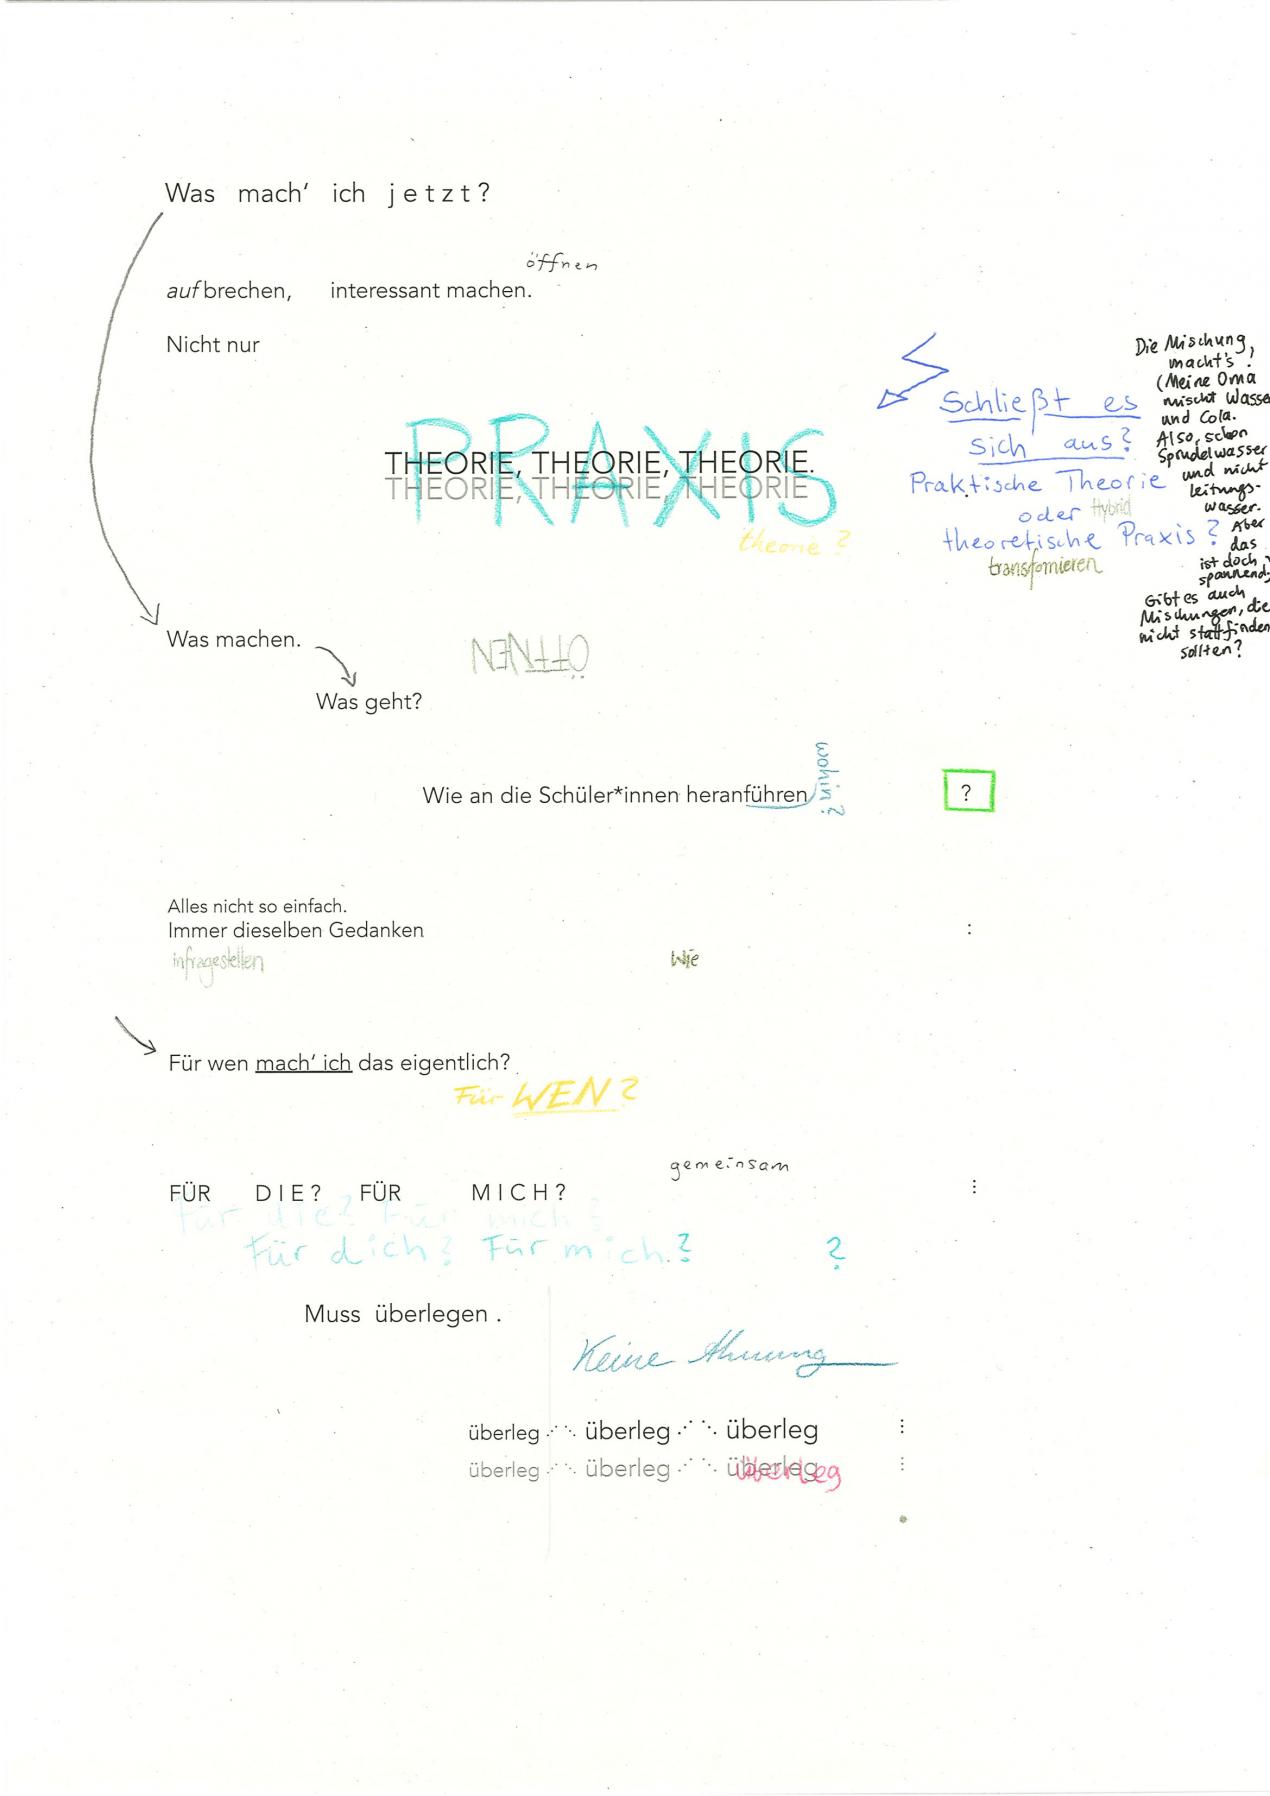 Was mach' ich jetzt?
öffnen
aufbrechen, interessant machen.
Nicht nur
PRAXIS
THEORIE, THEORIE, THEORIE.
THEORIE, THEORIE, THEORIE
theorie?
Schließt es
sich aus?
Praktische Theorie
oder Hybrid
theoretische Praxis?
transfomieren
Die Mischung
macht's!
(Meine Oma
mischt Wasser
und Cola.
Also, schon
Sprudelwasser
und nicht
Leitungs-
wasser.
Aber
das
ist doch
spannend)
Gibt es auch
Mischungen, die
nicht stattfinden
sollten?
Was machen.
ÖFFNEN
Was geht?
Wie an die Schüler*innen heranführen
wohin?
?
Alles nicht so einfach.
Immer dieselben Gedanken :
infragestellen
Wie
Für wen mach' ich das eigentlich?
Für WEN?
gemeinsam
FÜR DIE? FÜR MICH? ⋮
Für die? Für mich?
Für dich? Für mich? ?
Muss überlegen .
Keine Ahnung
überleg ⋰⋱ überleg ⋰⋱ überleg ⋮
überleg ⋰⋱ überleg ⋰⋱ überleg ⋮
überleg